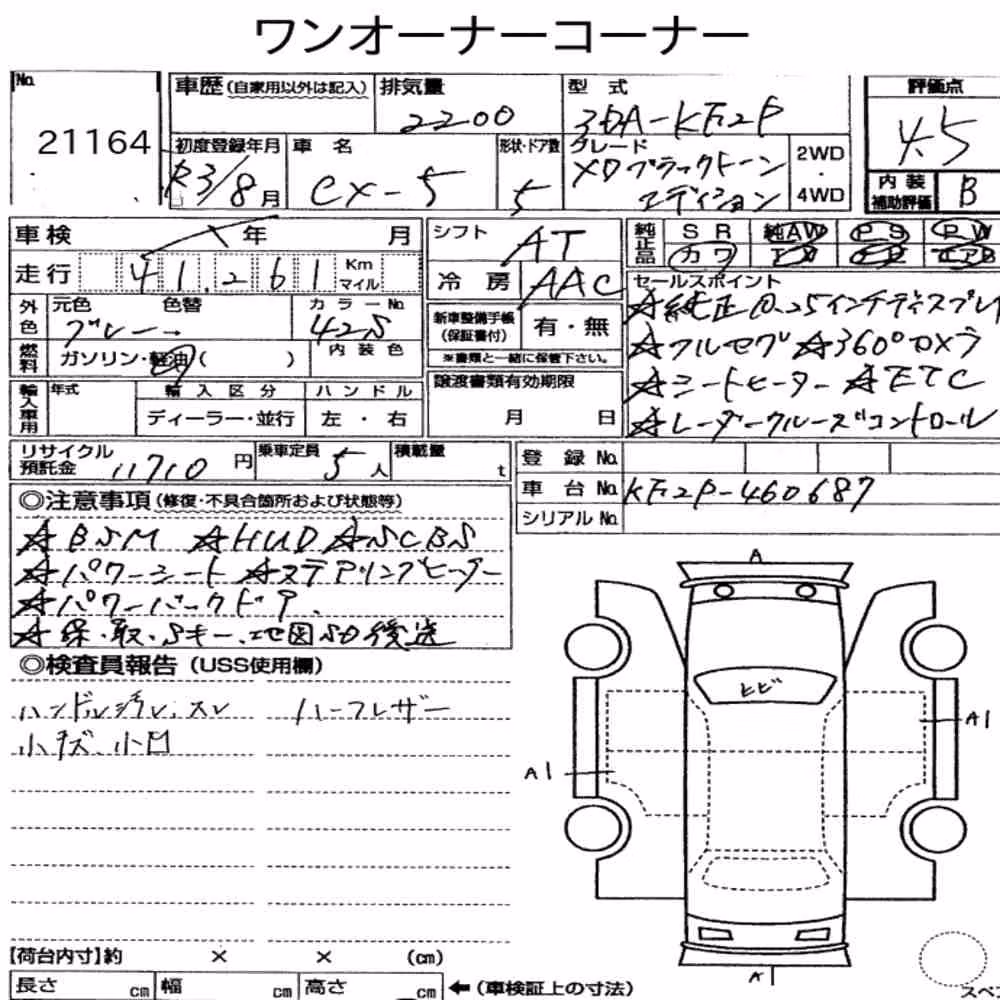 ワンオーナーコーナー
No. 21164
車歴(自家用以外は記入) 排気量 2200 型式 3DA-KF2P 評価点 4.5
初度登録年月 R3/8月 車名 CX-5 形状・ドア数 5 グレード XDブラックトーンエディション 2WD・4WD 内装補助評価 B
車検 年 月 シフト AT 純正品 SR 純AW PS PW
走行 41,261 Km マイル 冷房 AAC カワ エアB
外色 元色 グレー 色替 カラーNo. 42S
セールスポイント
☆純正10.25インチディスプレイ
燃料 ガソリン・軽油( ) 内装色
新車整備手帳(保証書付) 有・無
※書類と一緒に保管下さい。
☆フルセグ ☆360°カメラ
☆シートヒーター ☆ETC
☆レーダークルーズコントロール
輸入車用 年式 輸入区分 ディーラー・並行 ハンドル 左・右
譲渡書類有効期限 月 日
リサイクル預託金 11710円 乗車定員 5人 積載量 t
登録No.
車台No. KF2P-460687
シリアルNo.
◎注意事項(修復・不具合箇所および状態等)
☆BSM ☆HUD ☆SCBS
☆パワーシート ☆ステアリングヒーター
☆パワーバックドア.
☆保・取・Sキー、地図SD後送
◎検査員報告(USS使用欄)
ハンドル汚レ、スレ ハーフレザー
小キズ、小凹
A
ヒビ
A1
A1
A
【荷台内寸】約 × × (cm)
長さ cm 幅 cm 高さ cm ←(車検証上の寸法)
スペ